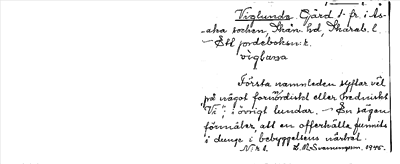 Viglunda. Gård 1 fr. i Ås-
aka socken, Skån. hd, Skarab. l.
- Ett jordeboksn:r.
vigluṇḍa
Första namnleden syftar väl
på något fornnordiskt eller
"Vi", i övrigt lundar. - En sägen
förmäler att en offerkälla funnits
i dunge i bebyggelsens närhet.
1945.